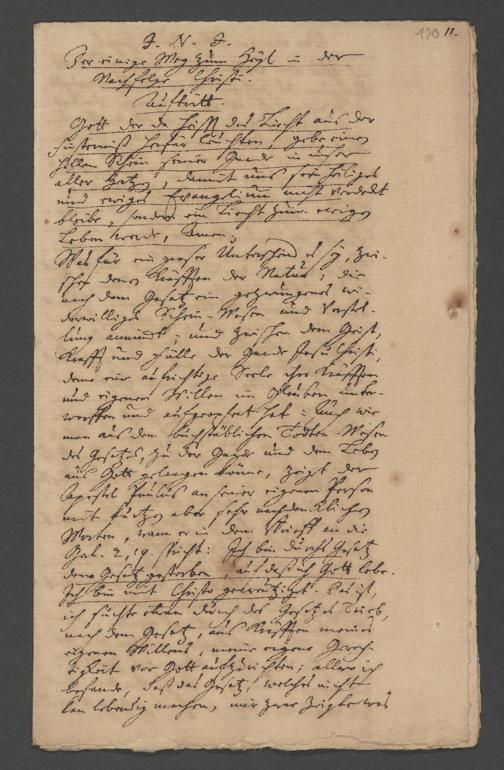 120 11.
J. N. J.
Der einige Weg zum Heyl in der
Nachfolge Christi.
Auftritt.
Gott der da hieß das Licht aus der
Finsterniß herfür leuchten, gebe einen
hellen Schein seiner Gnade in unser
aller Hertzen, damit uns sein heiliges
und ewiges Evangelium nicht verdekt
bleibe, sondern ein Licht zum ewigen
Leben werde, Amen.
Was für ein großer Unterschied es sey, zwi-
schen denen Kräfften der Natur, die
nach dem Gesetz ein gezwungenes wi-
derwilliges Schein-Wesen und Vorstel-
lung annimt, und zwischen dem Geist,
Krafft und Fülle der Gnade Jesu Christi,
deme eine aufrichtige Seele ihre Kräfften
und eigenen Willen im Glauben unter-
worffen und aufgeopfert hat: Auch wie
man aus dem buchstäblichen Todten-Wesen
des Gesetzes, zu der Gnade und dem Leben
aus Gott gelangen könne, zeigt der
Apostel Paulus an seiner eigenen Person
mit kurtzen aber sehr nachdenklichen
Worten, wann er in dem Brieff an die
Gal. 2, 19. spricht: Ich bin durchs Gesetz
dem Gesetz gestorben auf daß ich Gott lebe.
Ich bin mit Christo gecreutziget. Das ist,
ich suchte etwan durch des Gesetzes Trieb,
nach dem Gesetz, aus Kräfften meines
eigenen Willens, meine eigene Gerech-
tigkeit vor Gott aufzurichten; allein ich
befande, daß das Gesetz, welches nicht
kan lebendig machen, mir zwar zeigte was